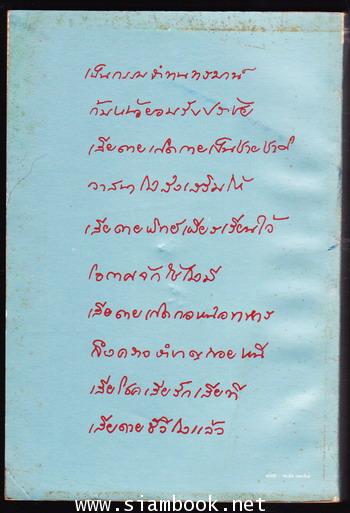 เป็นกรรมจำทนทรมาน์
ก้มหน้ายอมรับปราชัย
เสียดายเกิดกายเป็นชายชาติ
วาสนาไม่ส่งเสริมให้
เสียดายเพียรเรียนไว้
โอกาสจักใช้ไม่มี
เสียดายเกิดก่อหน่อทหาร
ถึงคราวถอยหนี
เสียโชคเสียรักเสียที
เสียดายชีวีไม่แล้ว
www.siambook.net